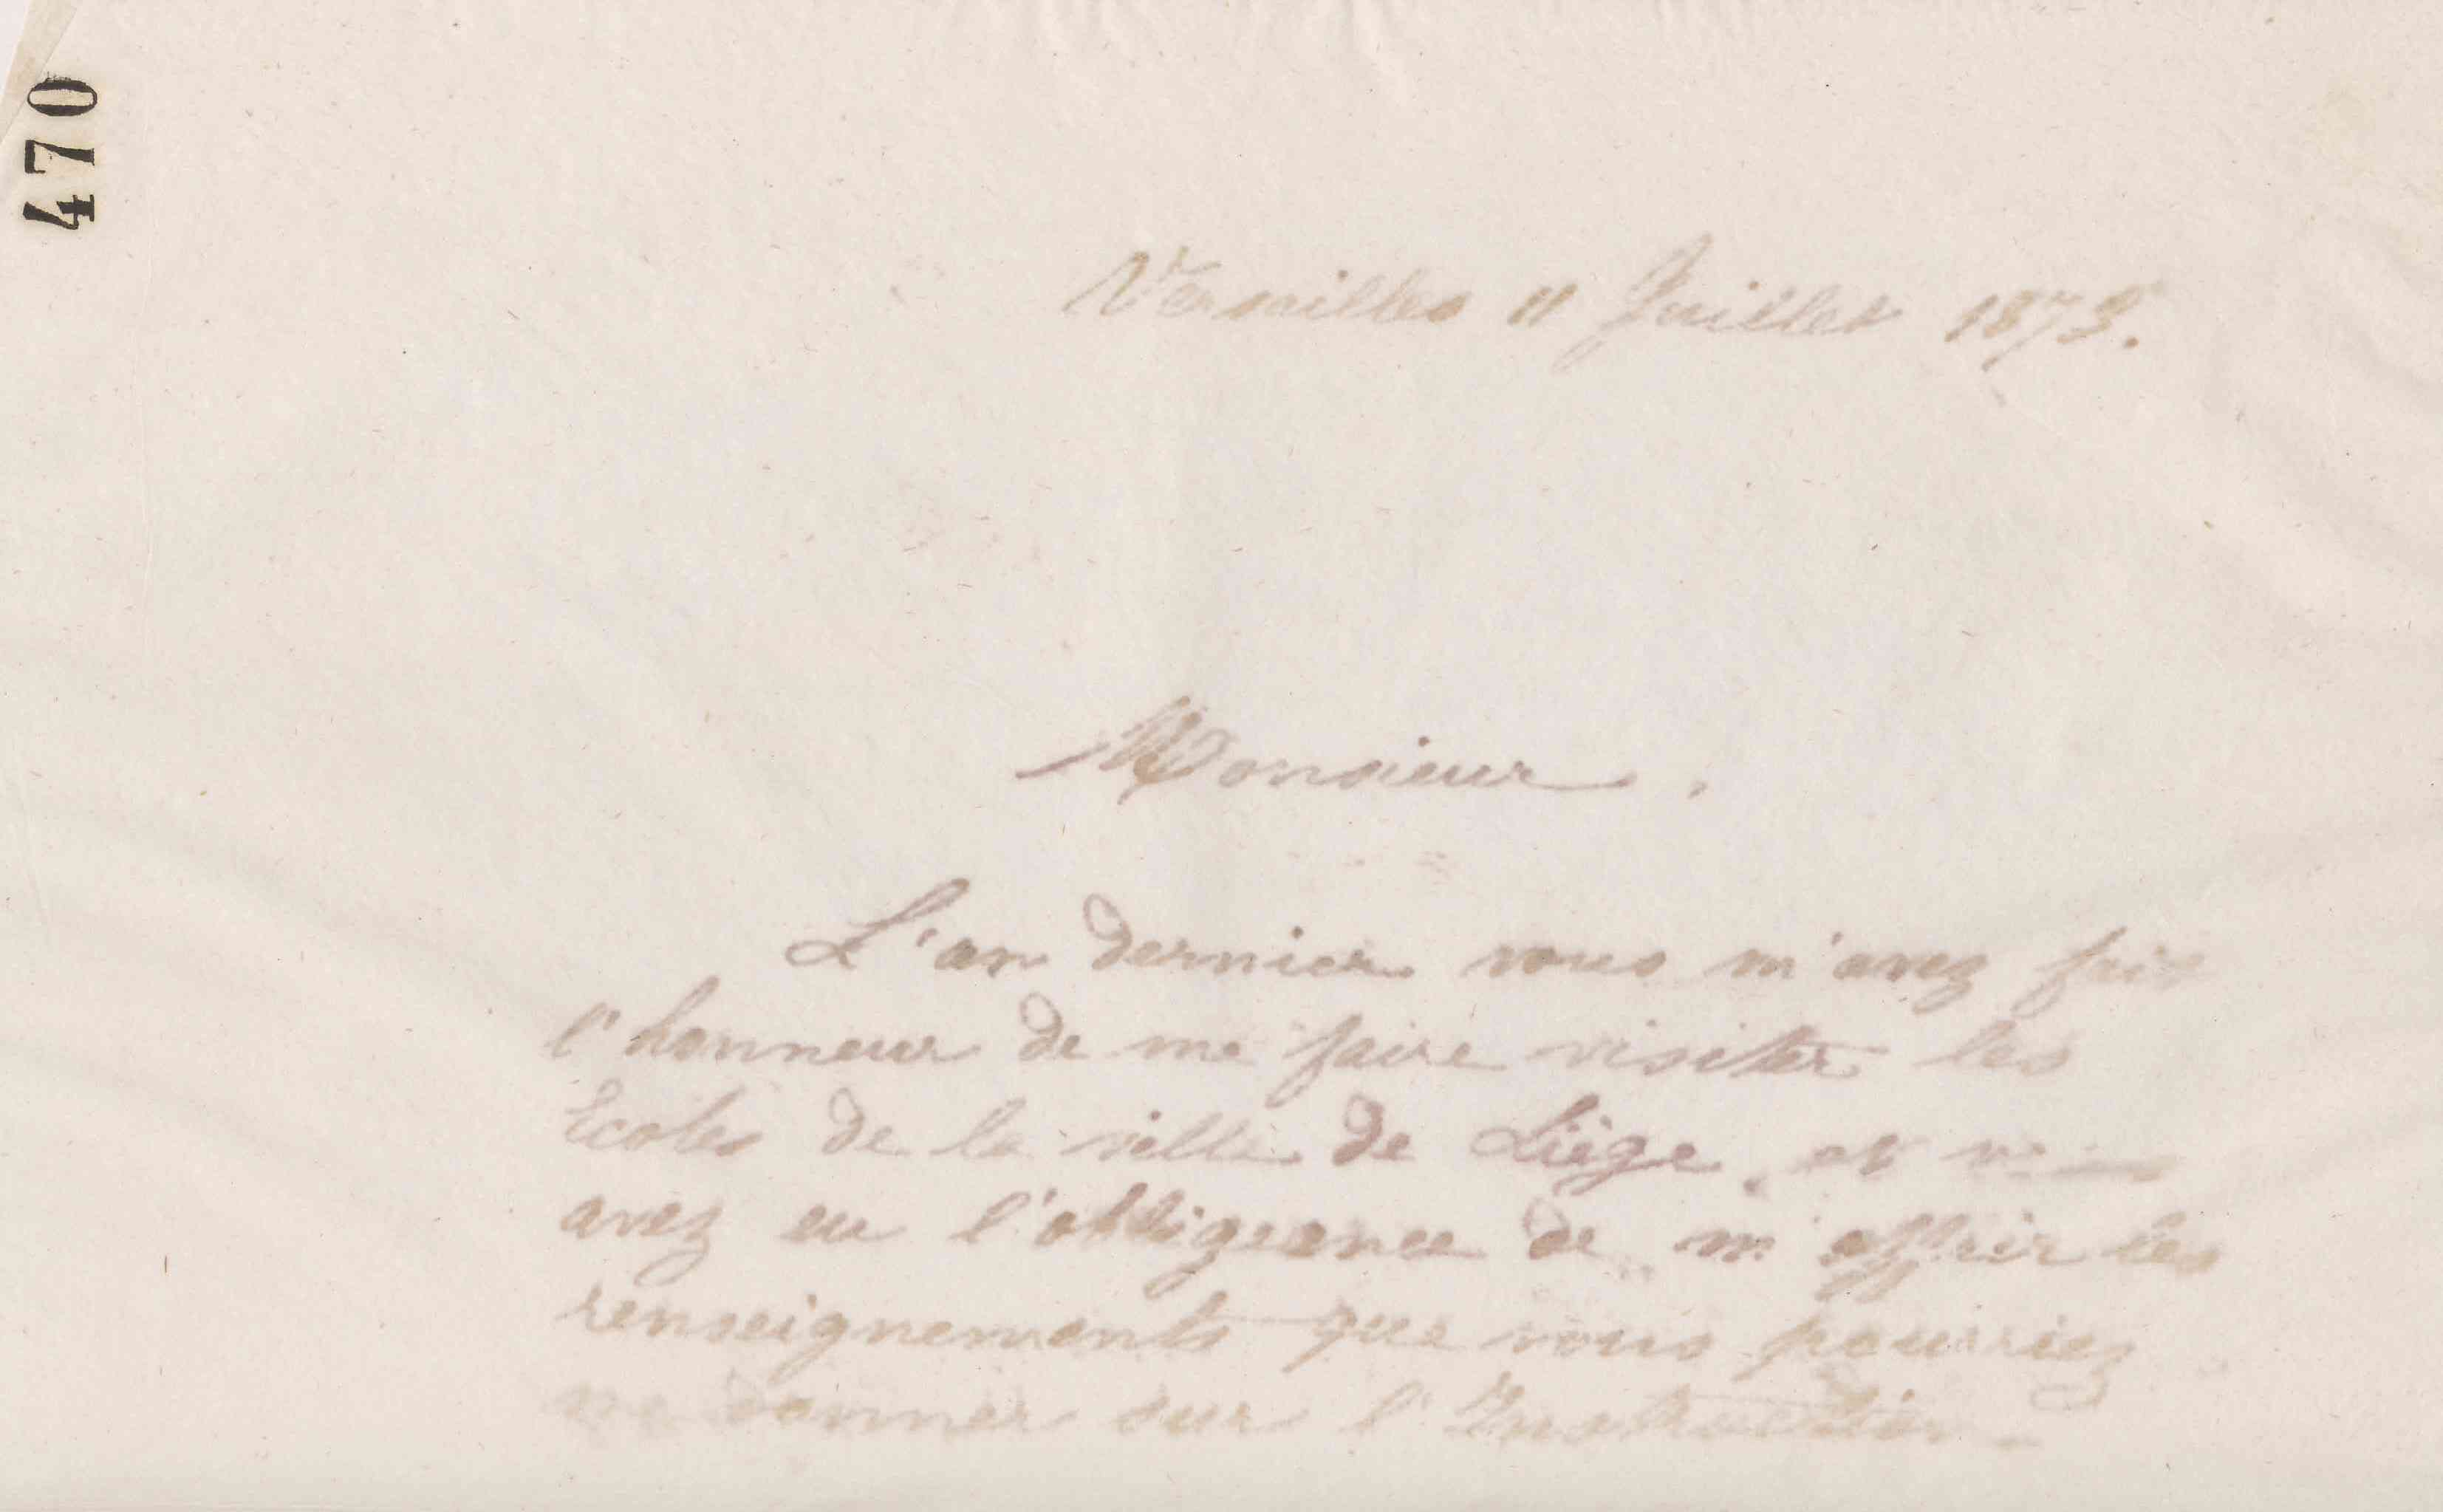 470
Versailles 11 Juillet 1873.
Monsieur.
L'an dernier vous m'avez fait
l'honneur de me faire visiter les
Ecoles de la ville de Liège, et
avez eu l'obligeance de m'offrir les
renseignements que vous pourriez
me donner sur l'Instruction